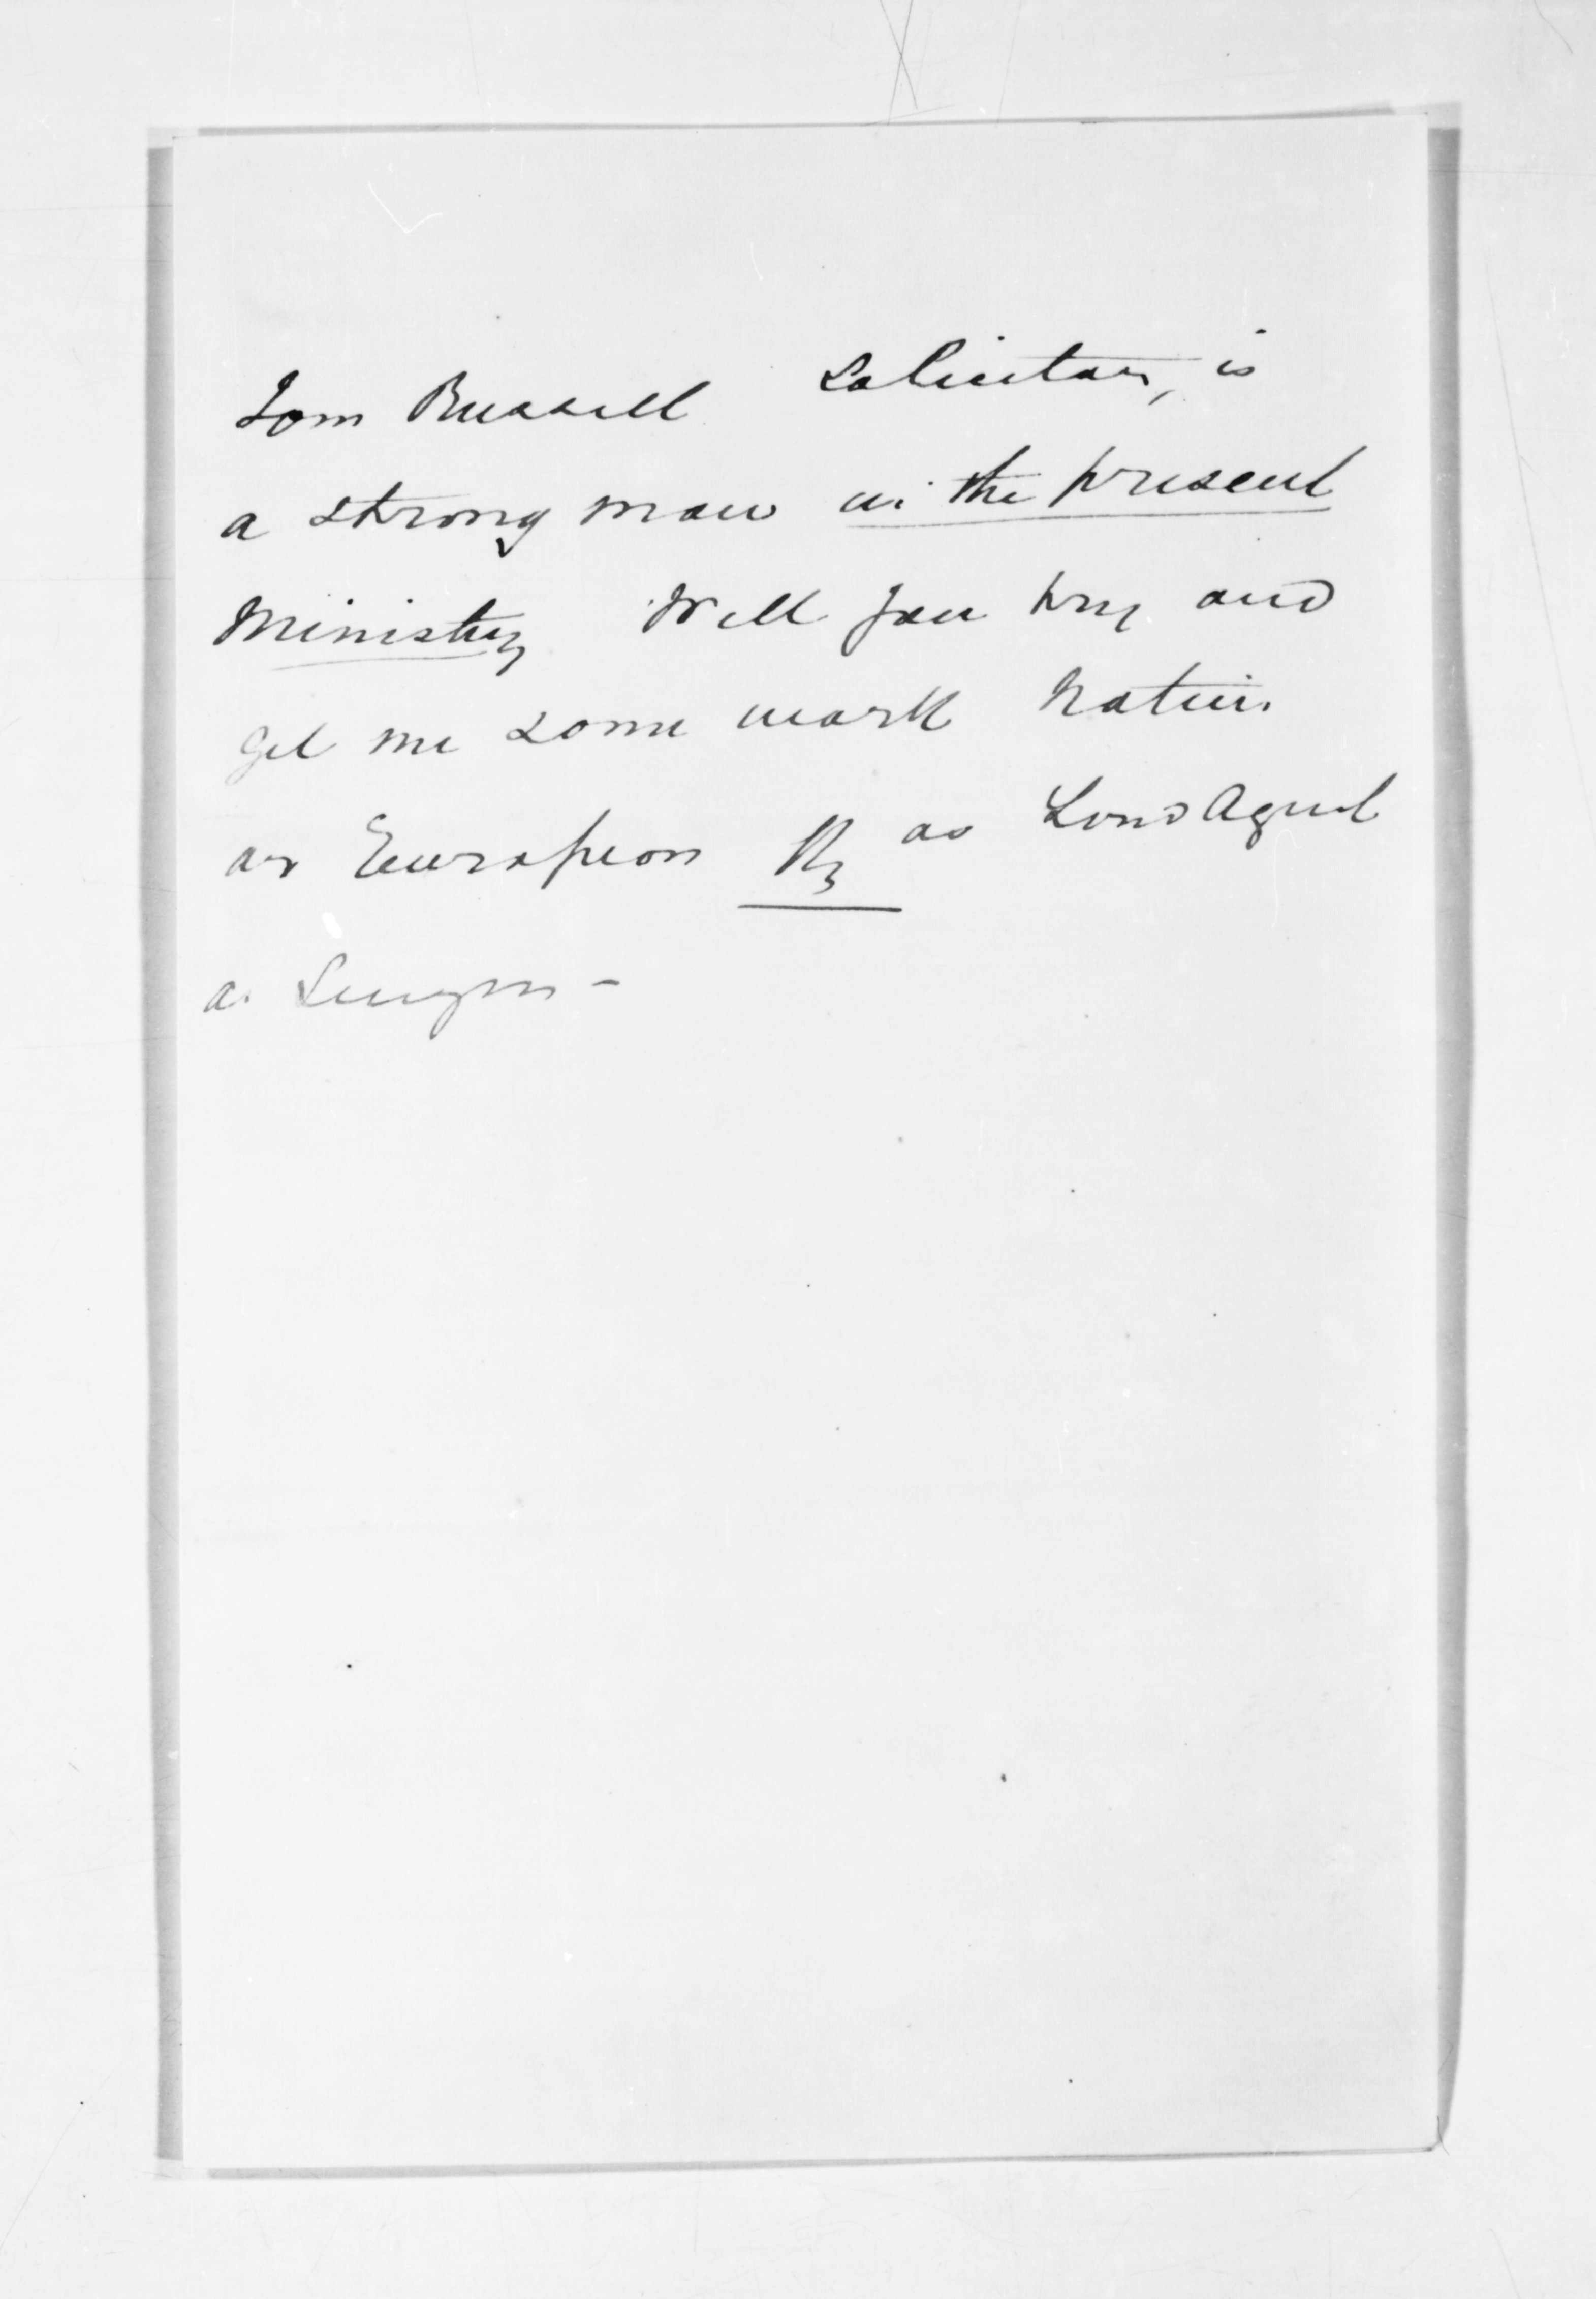 Tom Russell Solicitor, is
a strong man in the present
Ministry Will you try and
get me some work Native
or European Ry as Land Agent
or Surveyor -